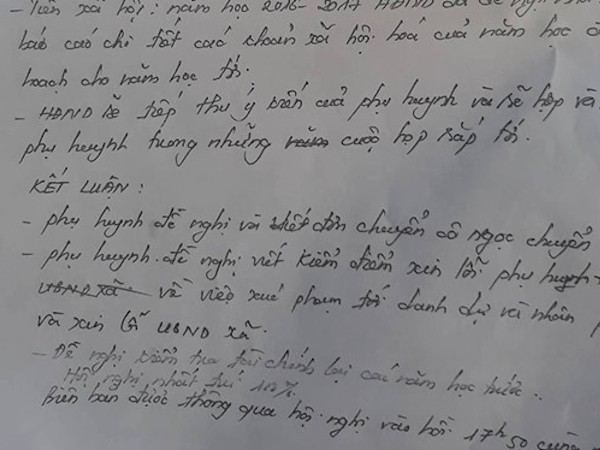 - Tiền xã hội: năm học 2016-2017 HĐND đã đề nghị nhà
báo cáo chi tiết các khoản xã hội hoá của năm học
hoạch cho năm học tới.
- HĐND sẽ tiếp thu ý kiến của phụ huynh và sẽ họp và
phụ huynh trong những cuộc họp sắp tới.
KẾT LUẬN:
- phụ huynh đề nghị và viết đơn chuyển cô Ngọc chuyển
- phụ huynh đề nghị viết kiểm điểm xin lỗi phụ huynh
UBND xã về việc xúc phạm tới danh dự và nhân
và xin lỗi UBND xã.
- Đề nghị kiểm tra tài chính lại các năm học trước..
Hội nghị nhất trí 100%
Biên bản được thông qua hội nghị vào hồi 17h50 cùng